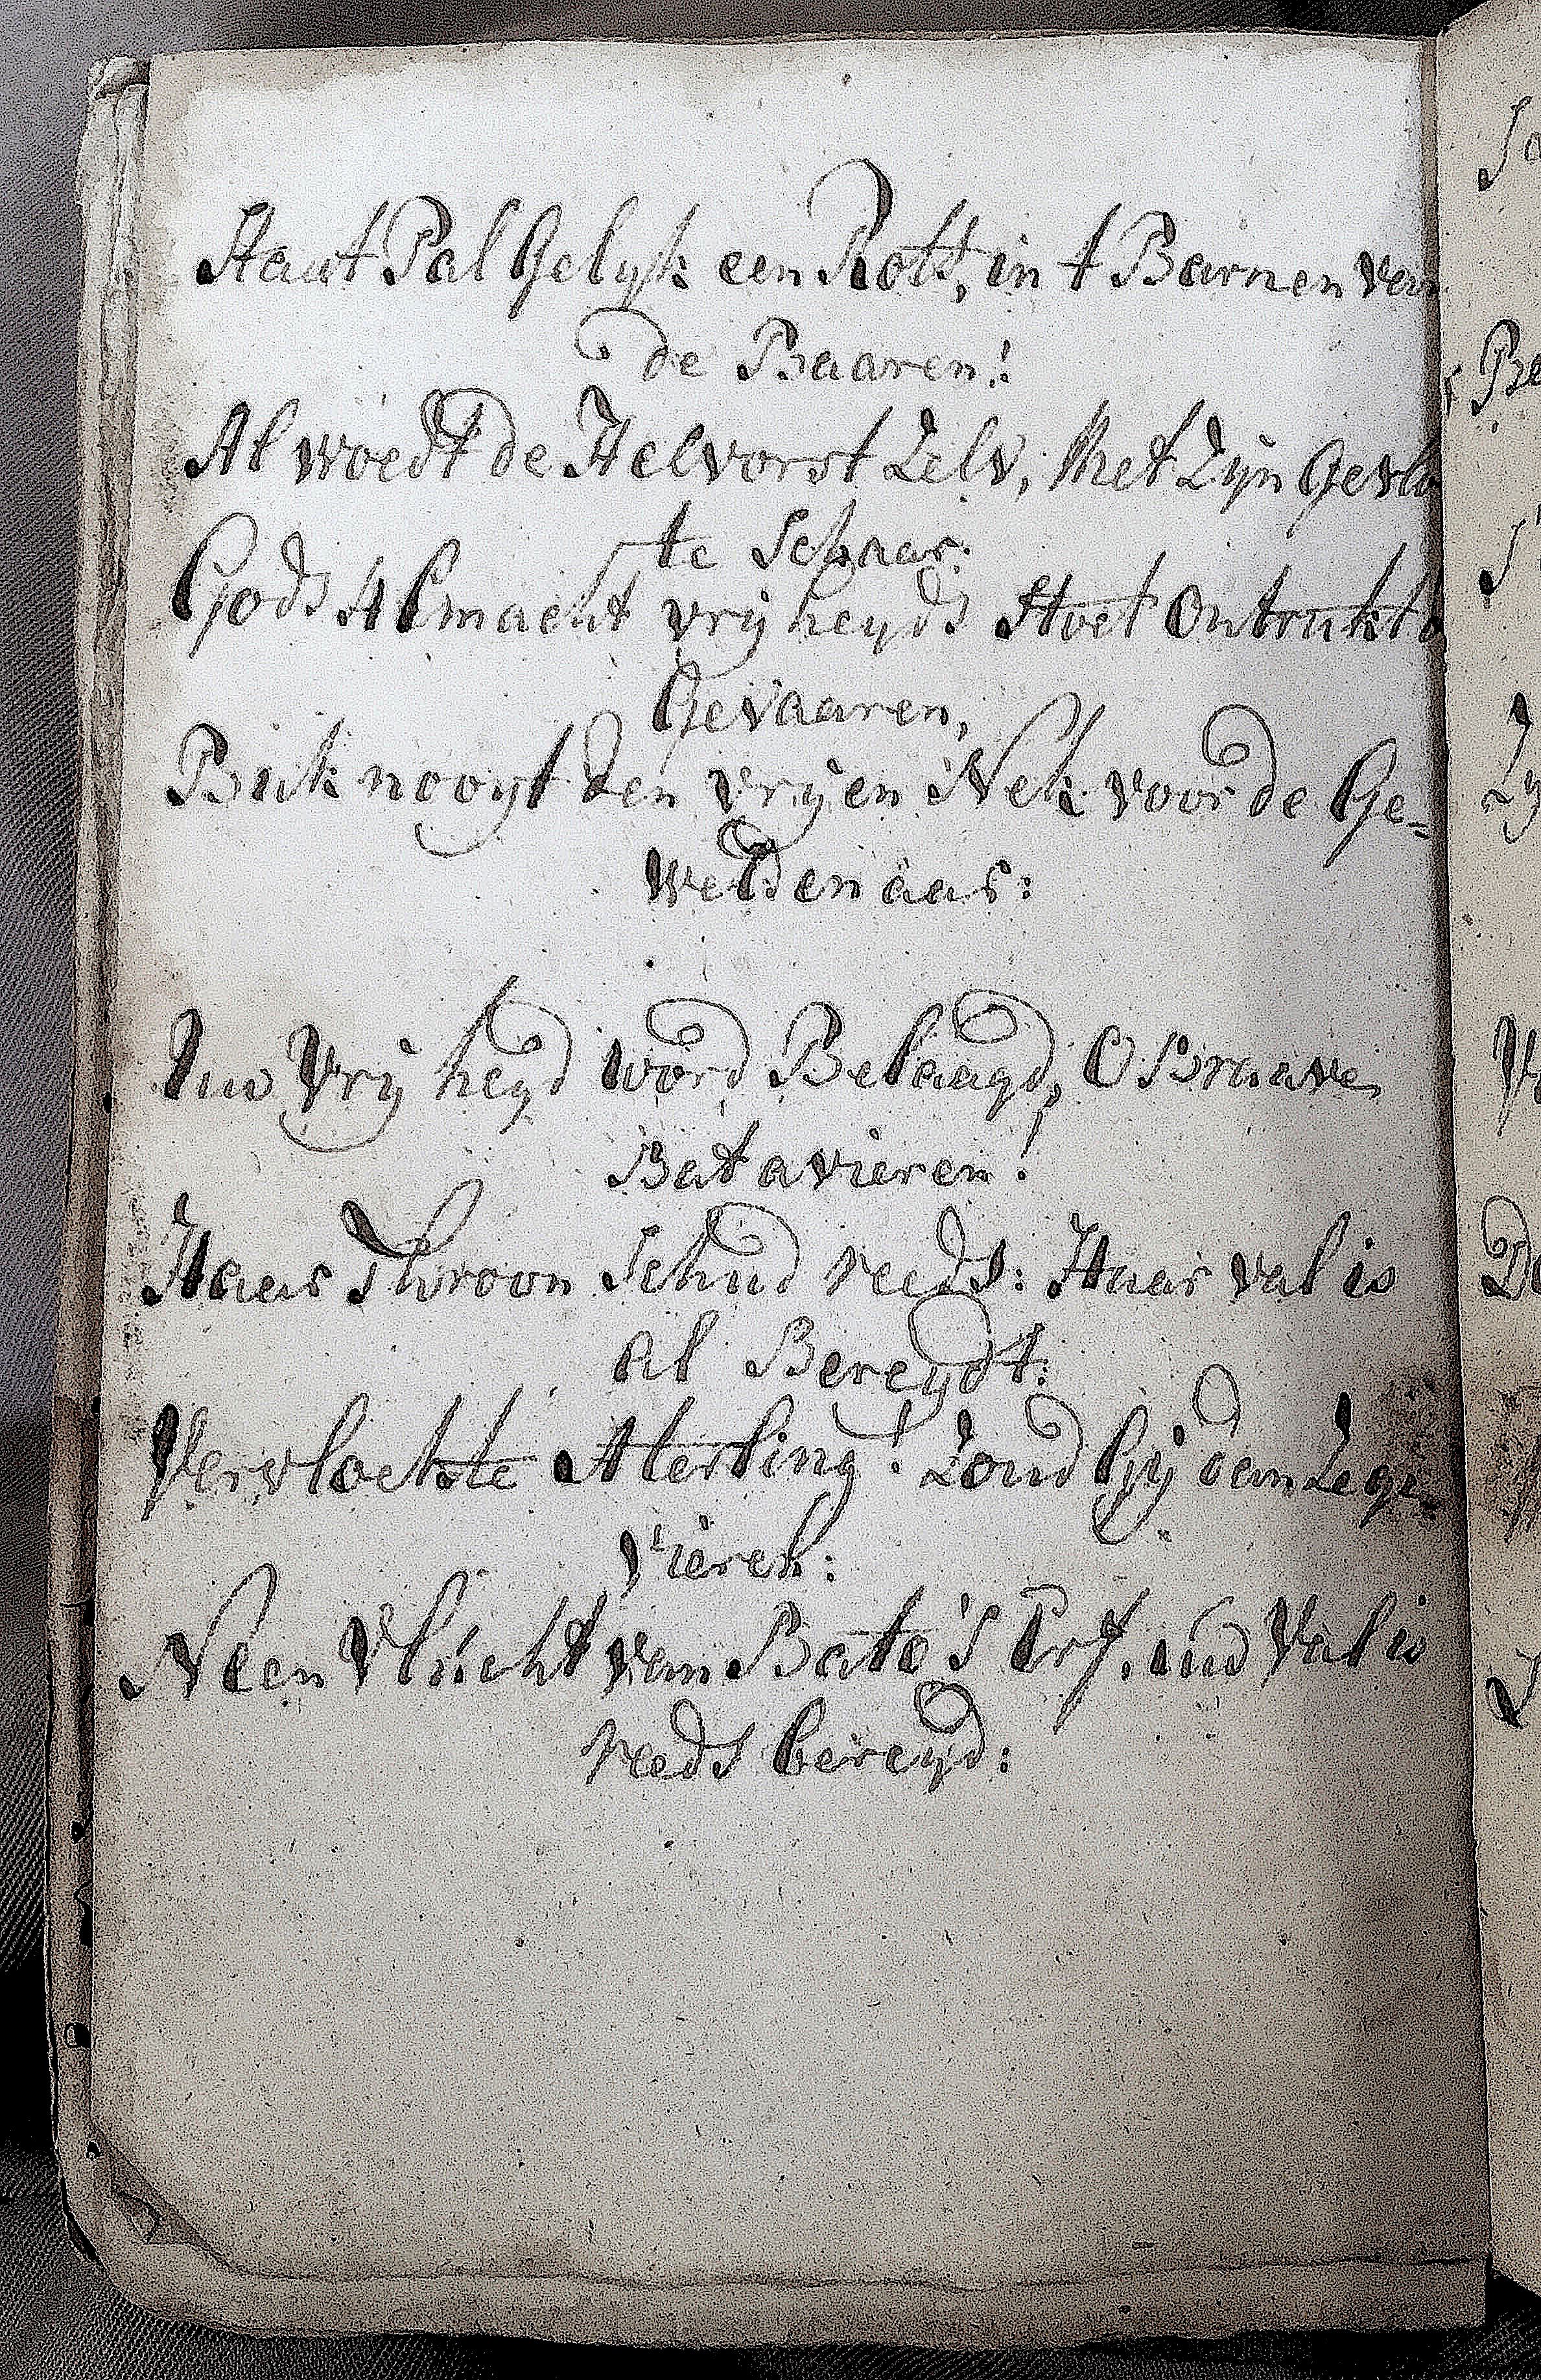 Staat Pal Gelyk een Rots, in t Barnen van
de Baaren!
Al woedt de Helvorst Zelv, Met Zyn Gevlo
te Schaar.
Gods Almacht vryheyds Stoet Ontrukt
Gevaaren,
Buk nooyt den vryen Nek voor de Ge=
weldenaar:
Uw Vryheyd word Belaagd, O Braave
Batavieren!
Haar Throon Schud reeds: Haar val is
al Bereydt:
Vervloekte Aterling! Zoud Gy dan Zege-
vieren:
Neen Vlucht van Bato's Erf. uw Val is
reeds bereyd: